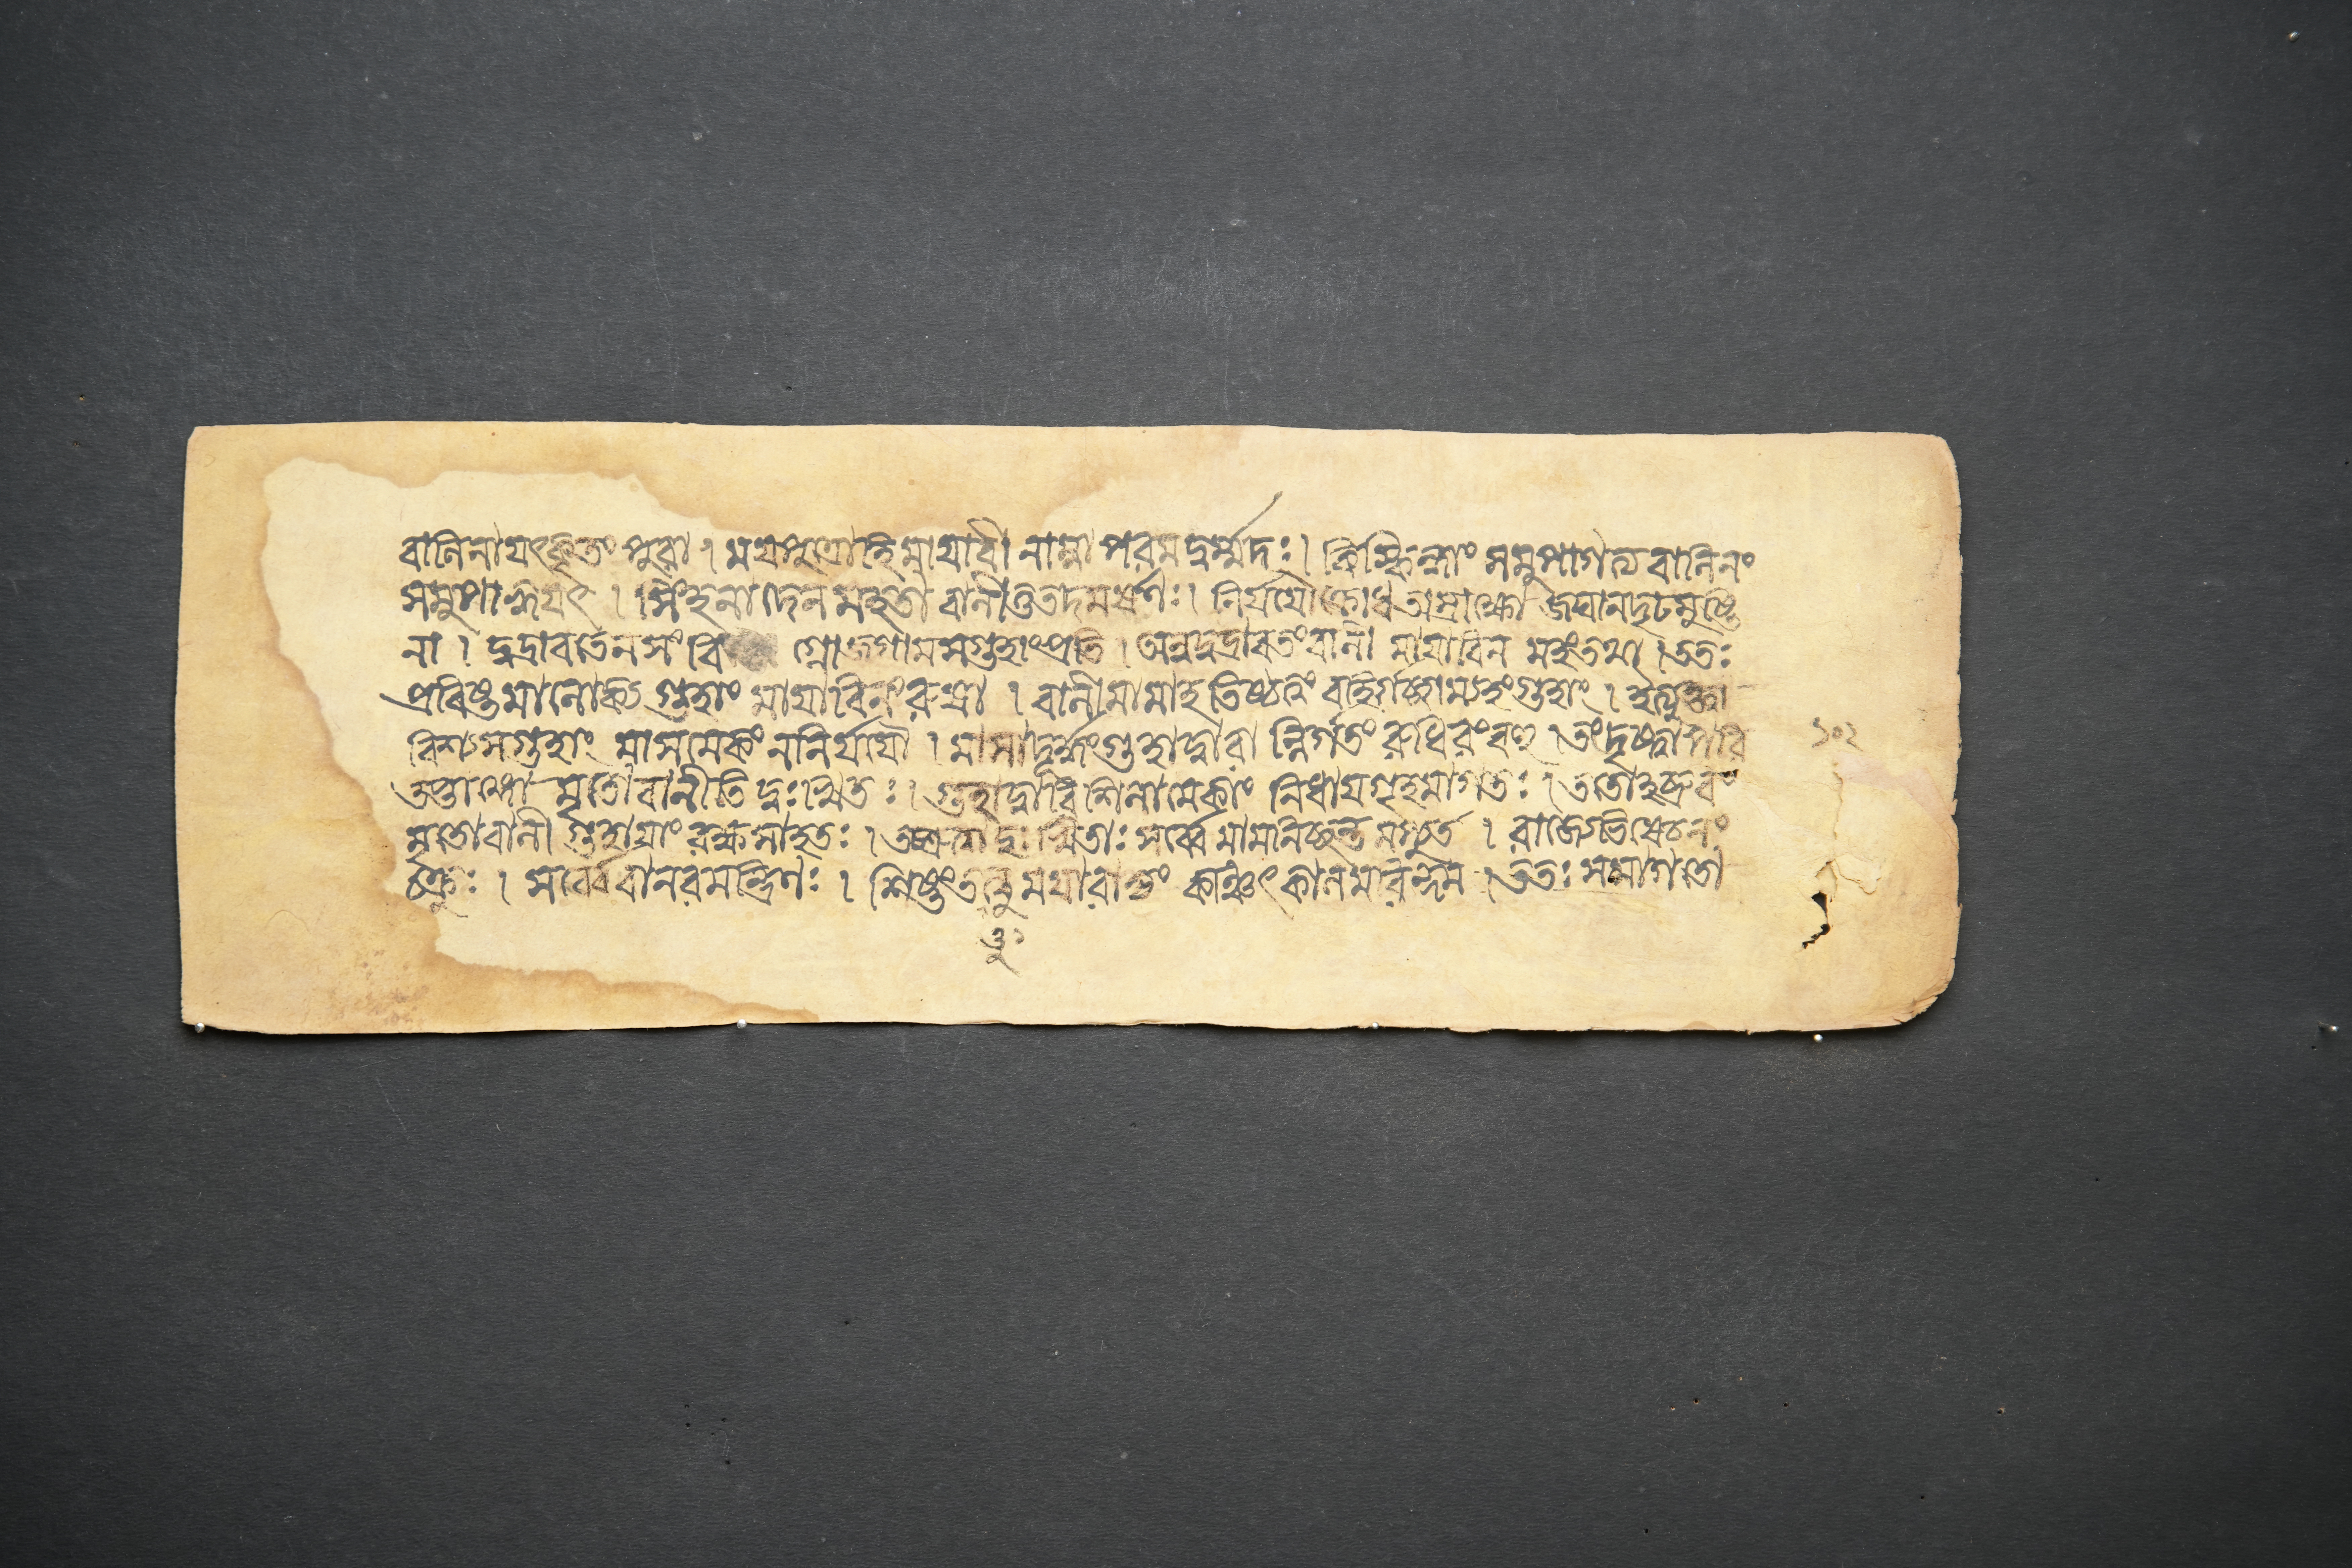 বালিনাযৎকৃতং পুরা । ময়পুত্রোহি মায়াবী নাম্না পরমদুর্ম্মদঃ । কিস্কিন্ধাং সমুপাগত্য বালিনং
সমুপাহ্বয়ৎ । সিংহনাদেন মহতা বালীতুতদমর্ষণঃ । নির্যযৌক্রোধতাম্রাক্ষো জঘানদৃঢমুষ্টি
না । দুদ্রাবতেনসংবি গ্নোজগামসগুহাংপ্রতি । অনুদুদ্রাবতংবালী মায়াবিন মহংতথা । ততঃ
প্রবিষ্টমালোক্য গুহাং মায়াবিনংরুষা । বালীমামাহ তিষ্ঠত্বং বহির্গচ্ছাম্যহংগুহাং । ইত্যুক্ত্বা
বিশ্যসগুহাং মাসমেকং ননির্যযৌ । মাসাদূর্দ্ধংগুহাদ্বারা ন্নির্গতং রুধিরংবহু । তংদৃষ্ট্বাপরি
তপ্তাঙ্গো মৃতোবালীতি দুঃখিতঃ । গুহাদ্বারি শিলামেকাং নিধায়গৃহমাগতঃ । ততোহব্রুবং
মৃতোবালী গুহায়াং রক্ষসাহতঃ । তচ্ছ্রুত্বাদুঃখিতাঃ সর্ব্বে মামনিচ্ছন্ত মপ্যুত । রাজ্যেভিষেচনং
চক্রুঃ । সর্ব্বেবানরমন্ত্রিণঃ । শিষ্টংতত্তুময়ারাজ্যং কিঞ্চিৎকালমরিন্দম । ততঃ সমাগতো
১০২